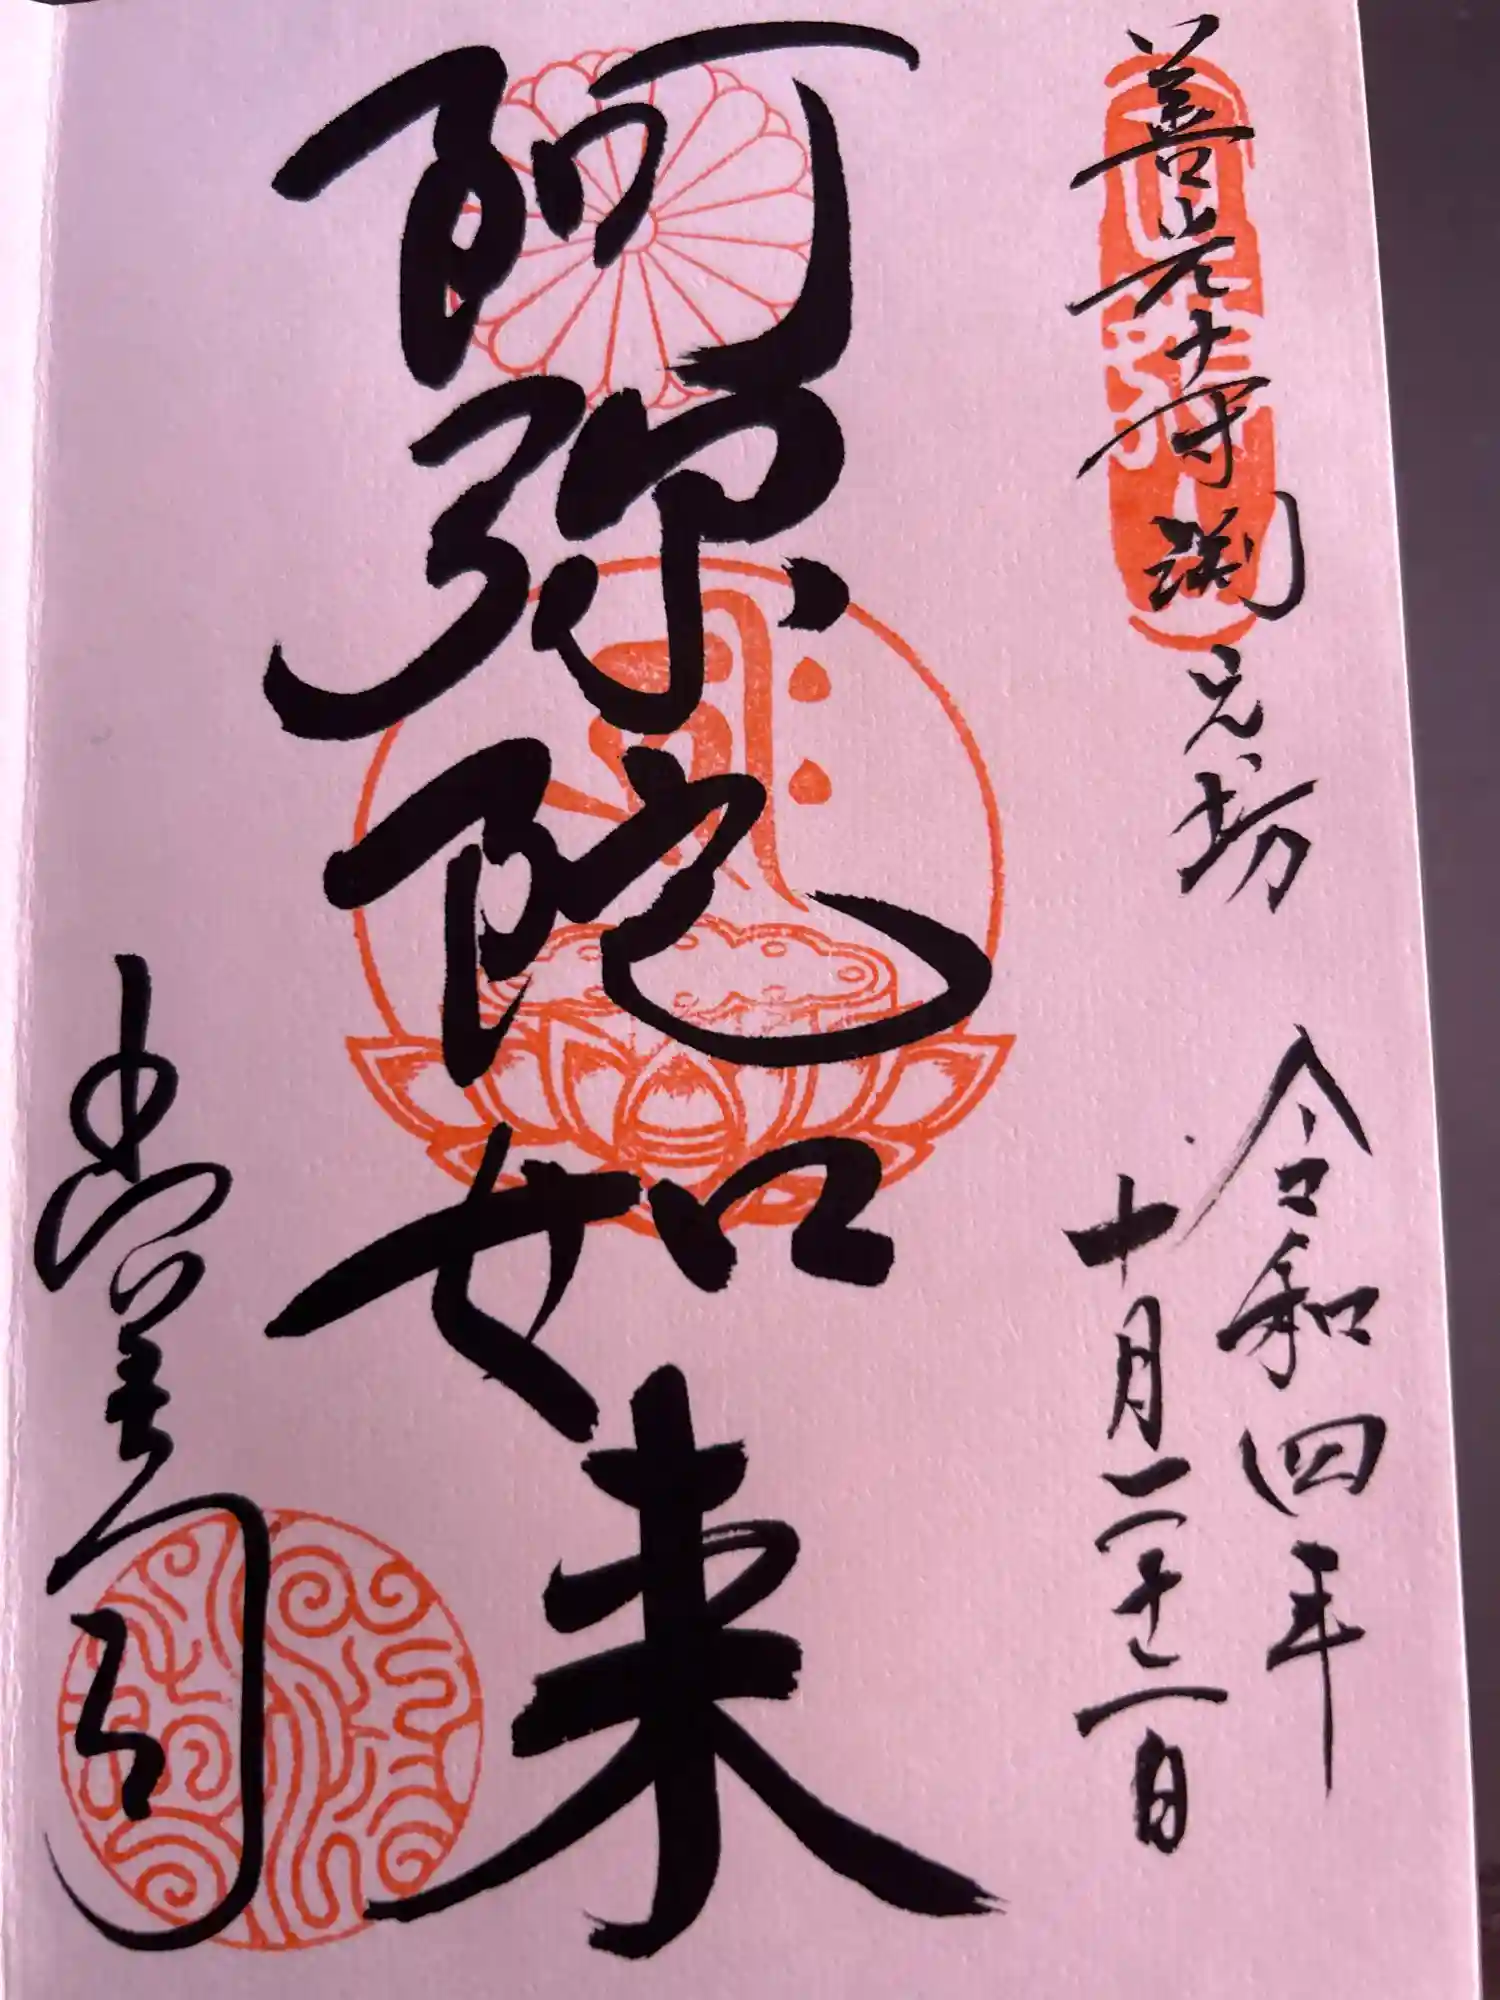 善光寺渕之坊
令和四年
十月二十二日
阿弥陀如来